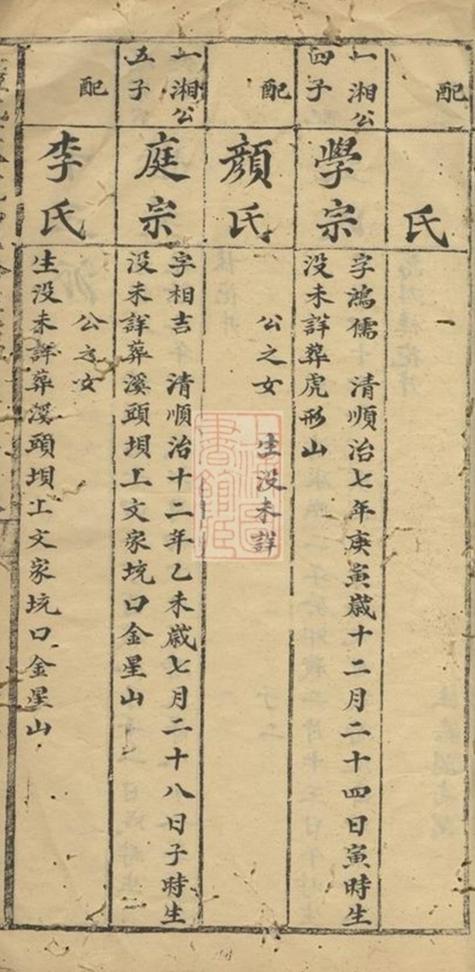 配
氏
一湘公
四子
學宗
字鴻儒 清順治七年庚寅歲十二月二十四日寅時生
没未詳葬虎形山
配
顏氏
公之女 生没未詳
一湘公
五子
庭宗
字相吉 清順治十二年乙未歲七月二十八日子時生
没未詳葬溪頭垻工文家坑口金星山
配
李氏
公之女
生没未詳葬溪頭垻工文家坑口金星山